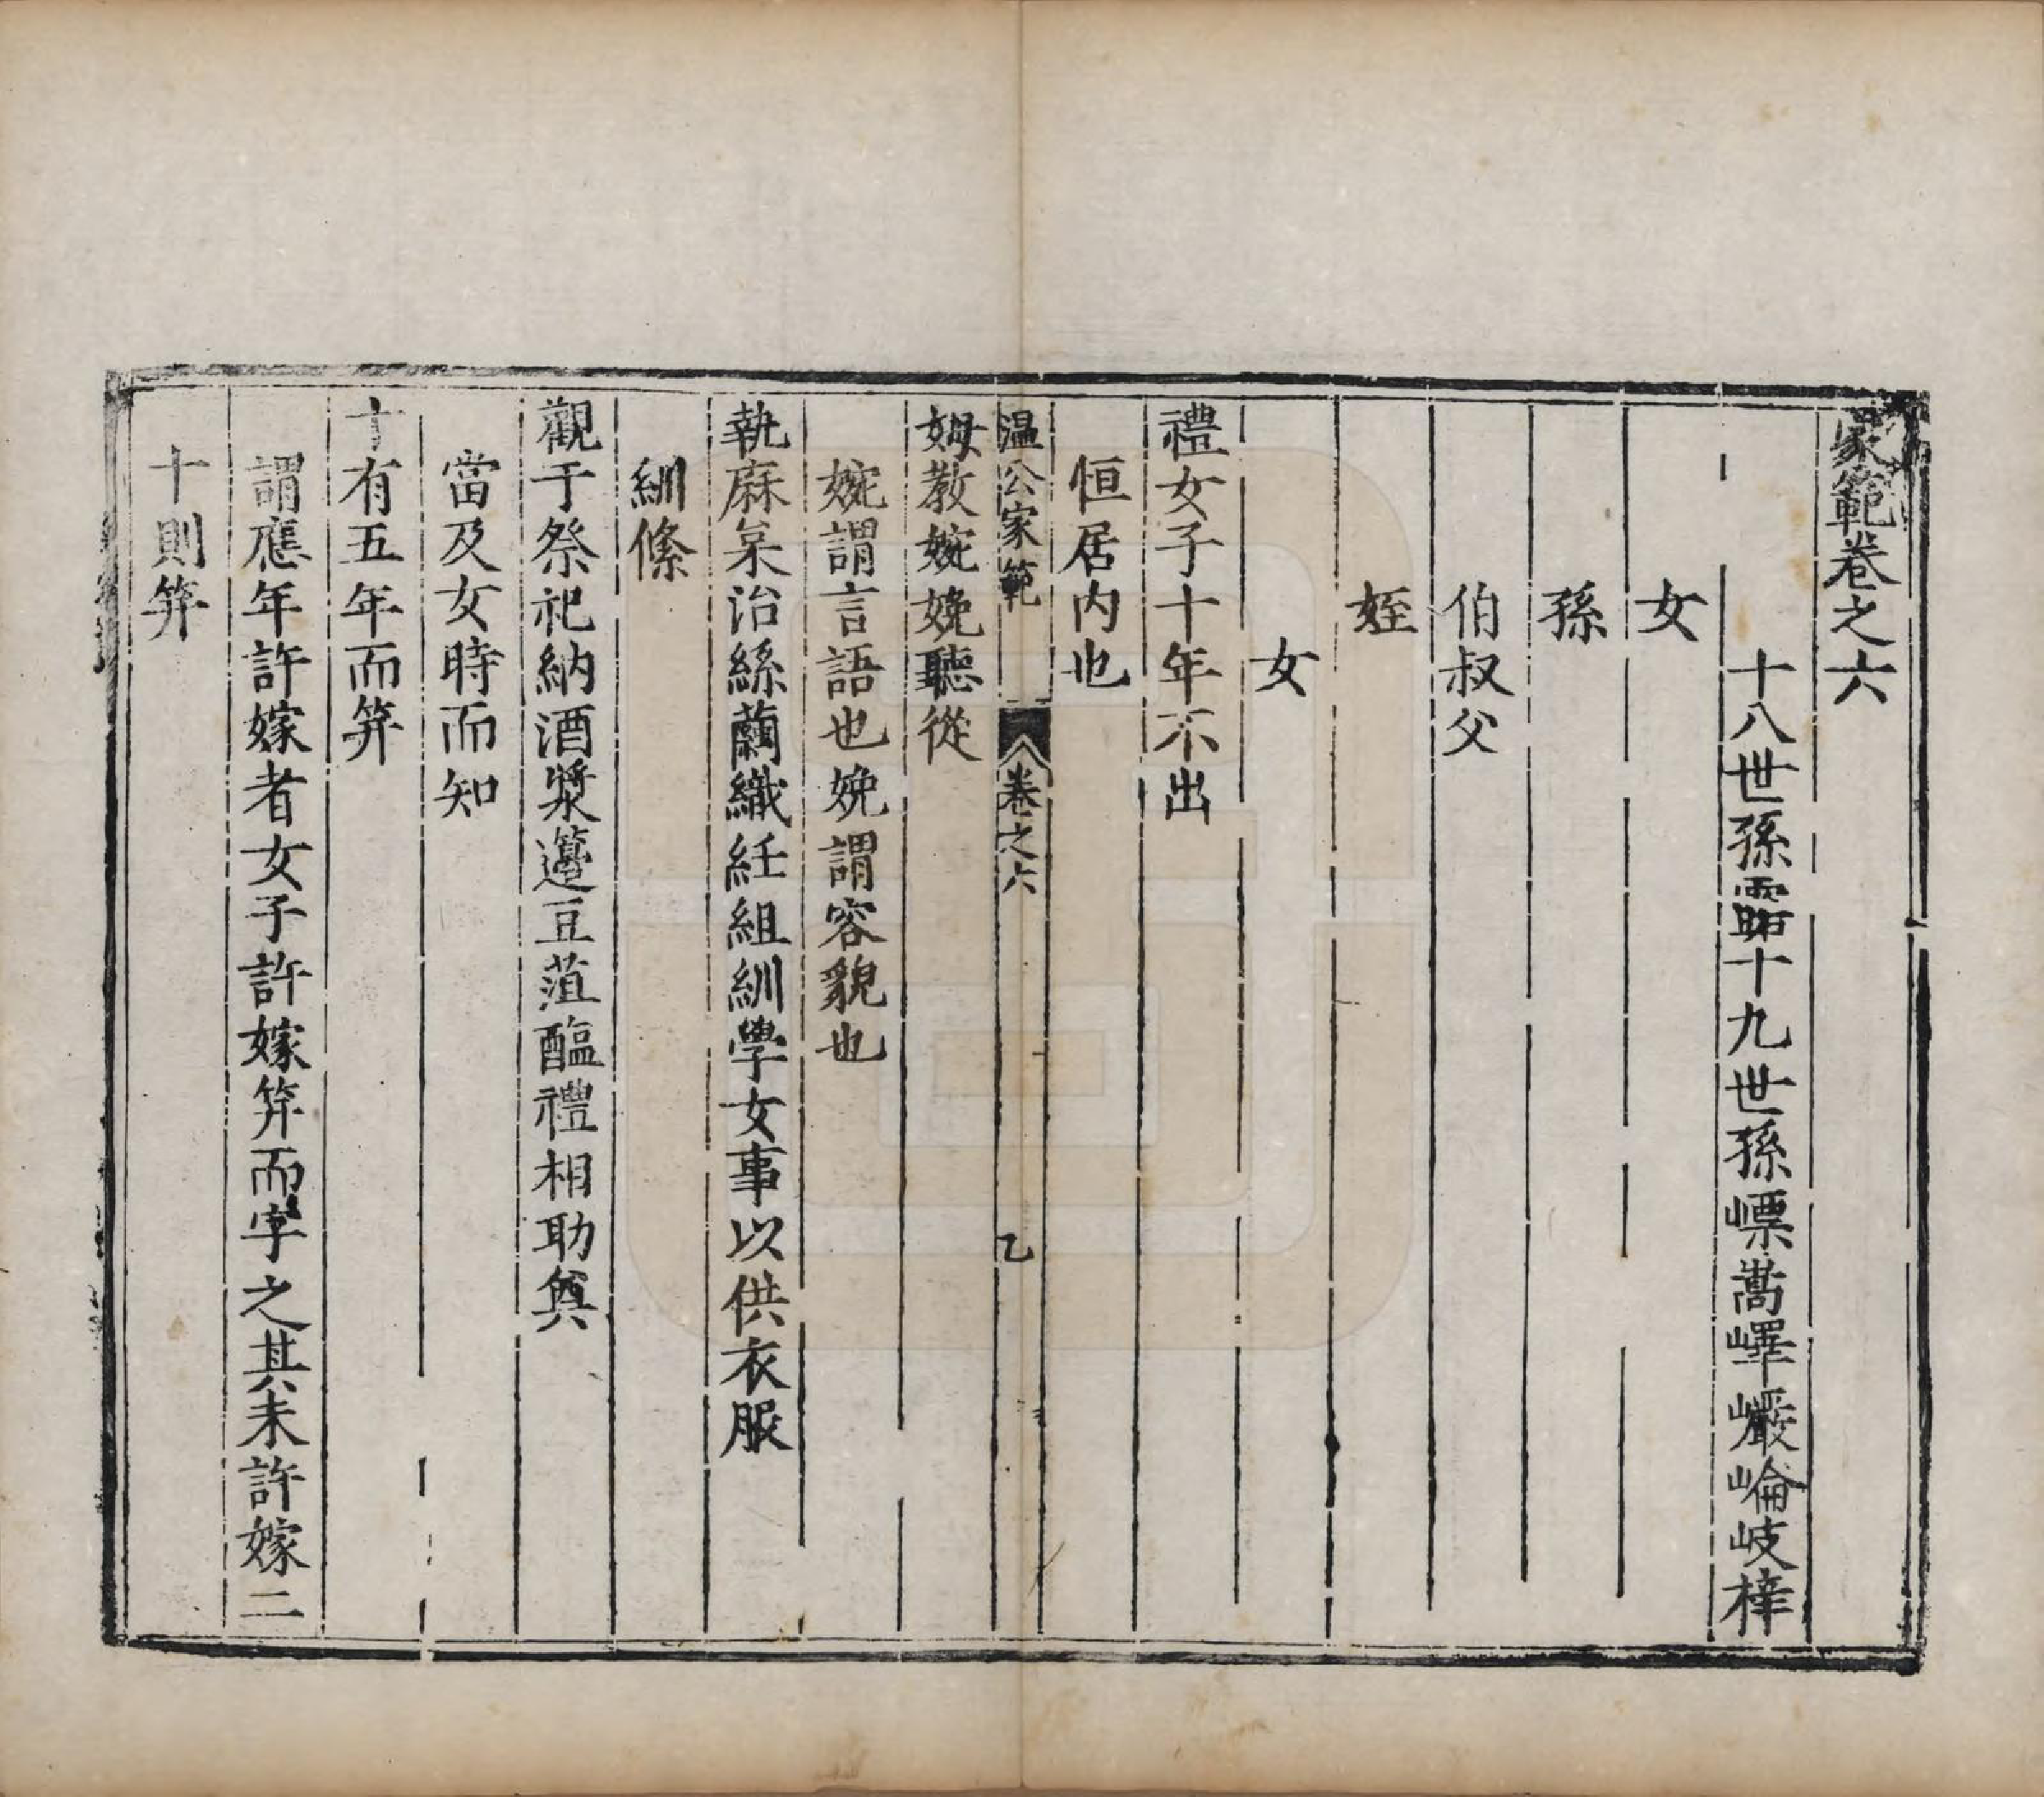 家範卷之六
十八世孫露十九世孫嶫嵩嶧巖崘岐梓
女
孫
伯叔父
姪
女
禮女子十年不出
恒居内也
温公家範
卷之六
乙
姆教婉娩聽從
婉謂言語也娩謂容貌也
執麻枲治絲繭織紝組紃學女事以供衣服
紃絛
觀于祭祀納酒漿籩豆菹醢禮相助奠
當及女時而知
十有五年而笄
謂應年許嫁者女子許嫁笄而字之其未許嫁二
十則笄